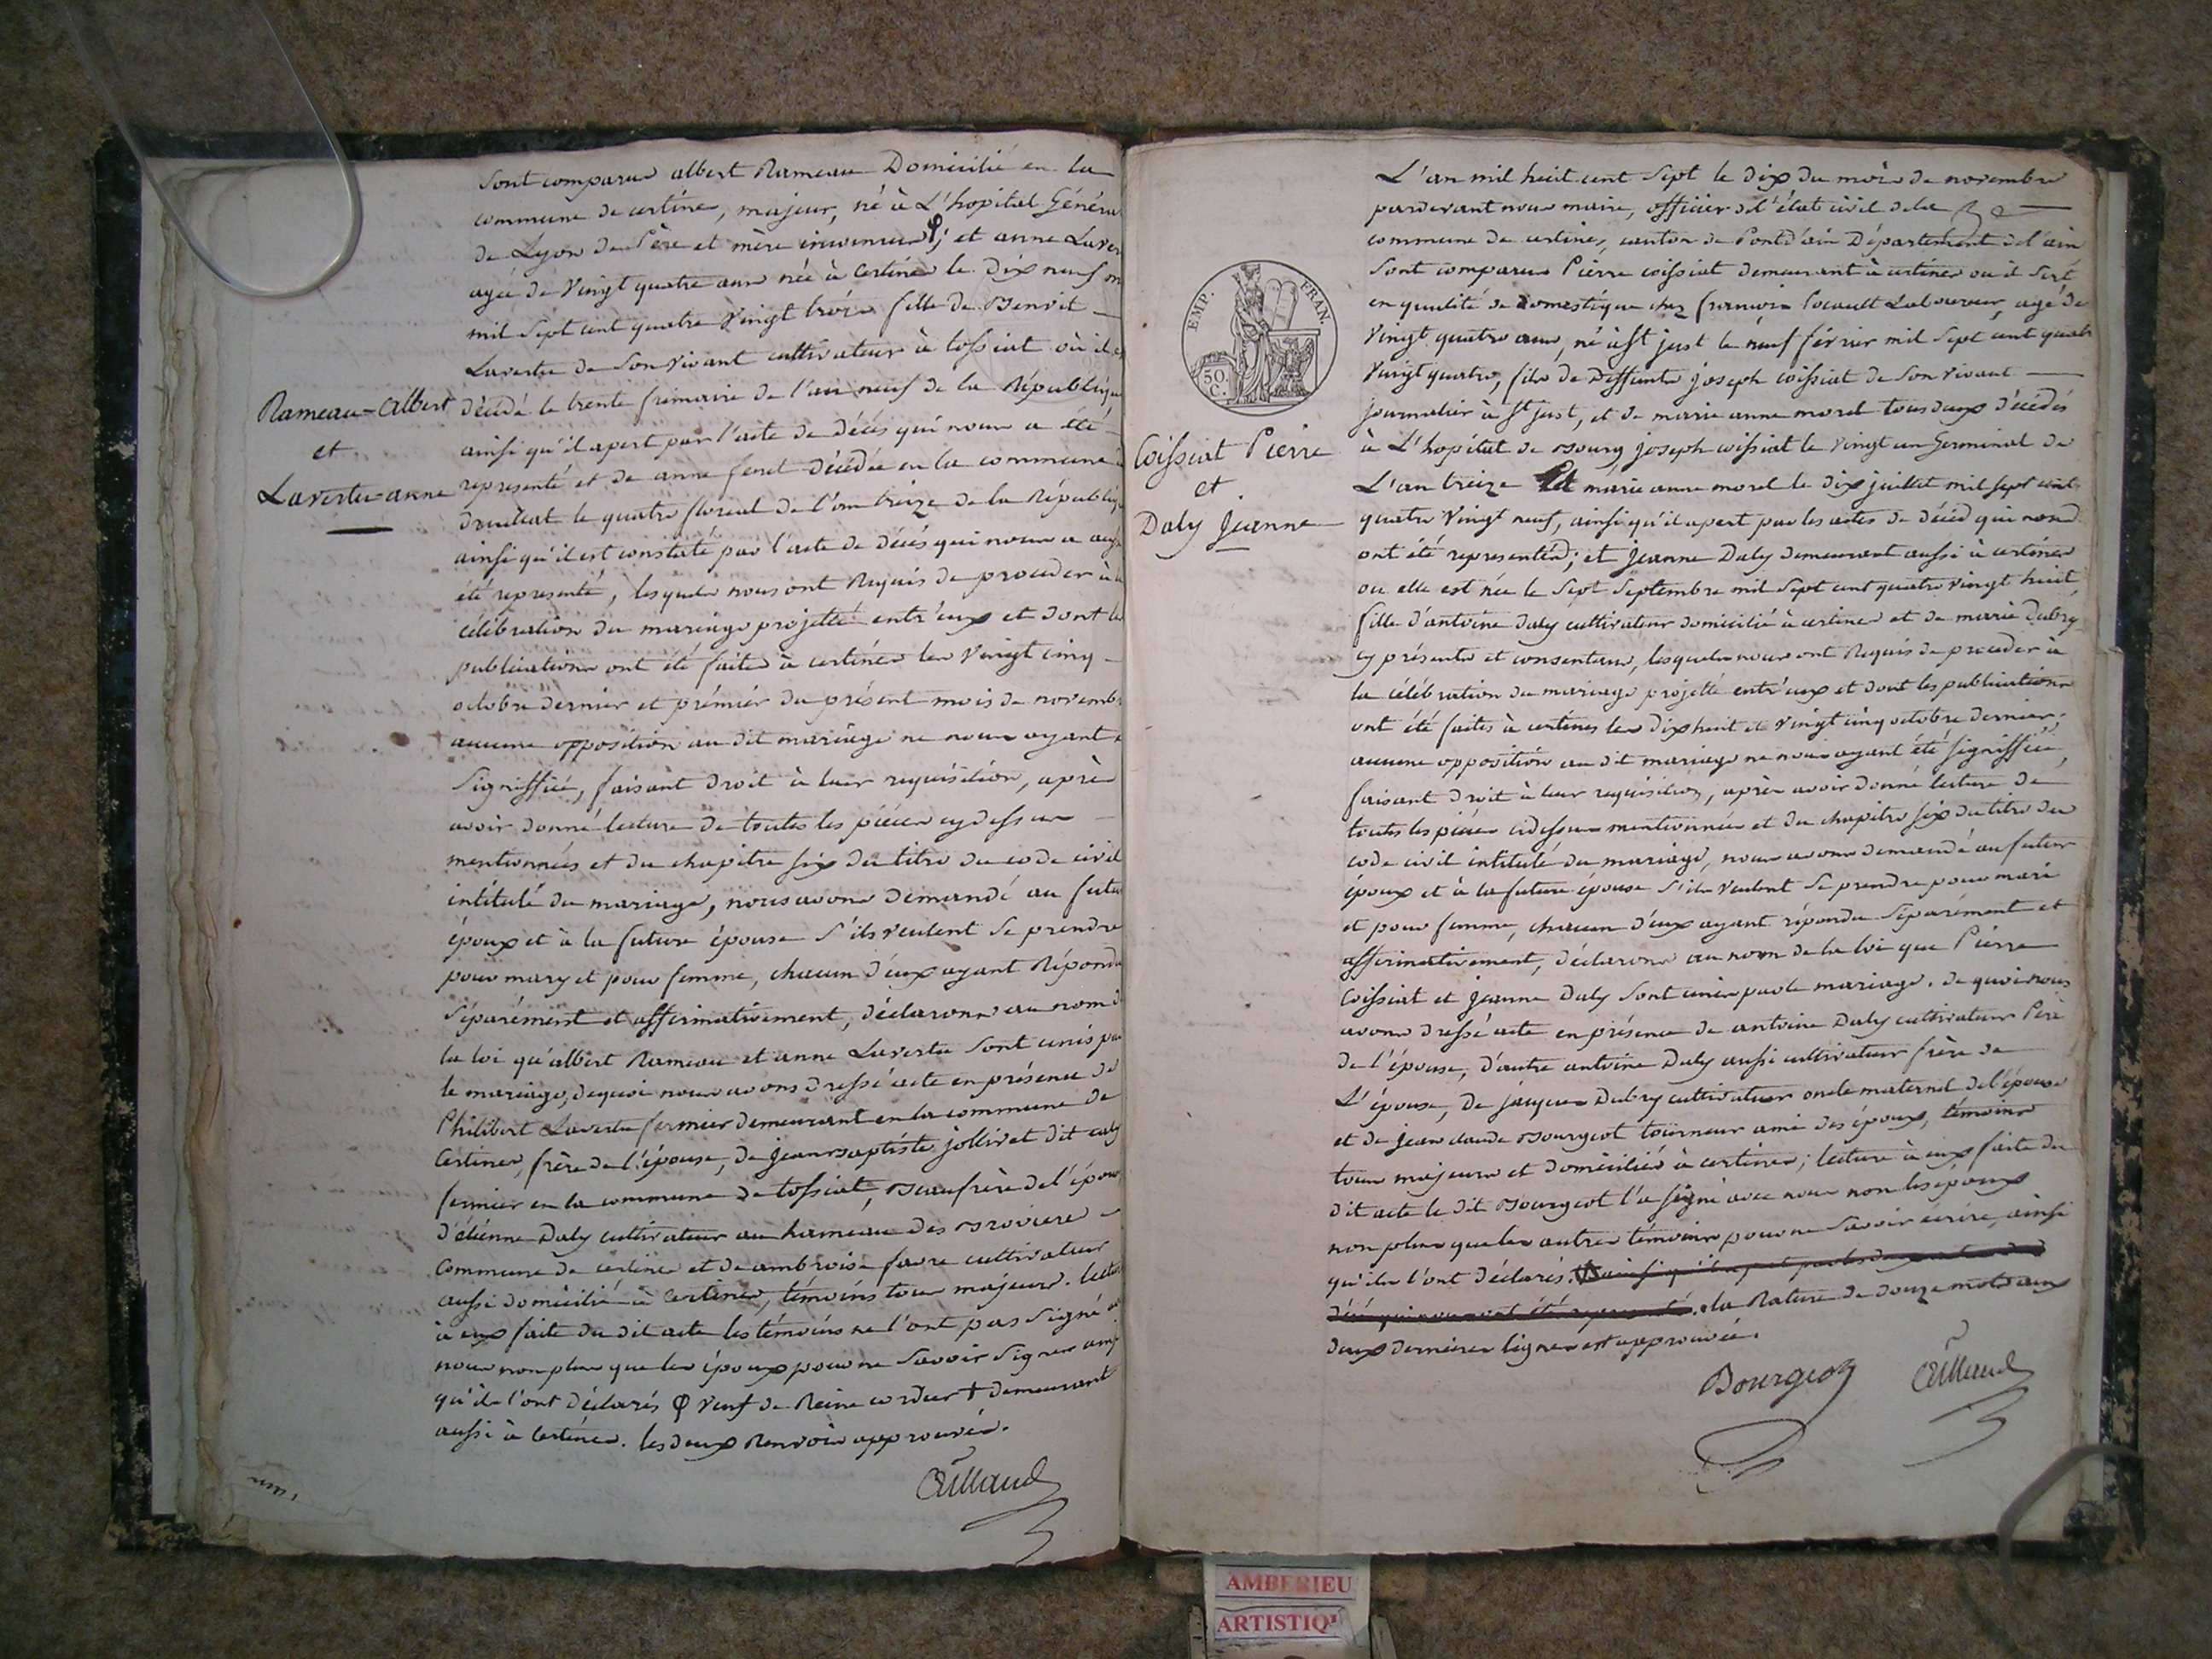 Sont comparus albert Rameau Domicilié en la
commune de certines, majeur, né à L'hopital Généra
de Lyon de Père et mère inconnus φ; et anne Laver
agée de Vingt quatre ans née à Certines le Dix neuf
mil Sept cent quatre Vingt trois fille de Benoit
Lavertu de Son vivant cultivateur à tossiat où il
décédé le trente frimaire de l'an neuf de la Républiq
ainsi qu'il apert par l'acte de décès qui nous a été
representé et de anne feret décédée en la commune
druillat le quatre floreal de l'an treize de la Républiq
ainsi qu'il est constaté par l'acte de décès qui nous a
été representé, lesquels nous ont Requis de proceder à
célébration du mariage projetté entr'eux et dont les
publications ont été faites à certines les Vingt cinq
octobre dernier et prémiér du présent mois de novemb
aucune opposition au dit mariage ne nous ayant
Signiffiée, faisant droit à leur requisition, après
avoir donné lecture de toutes les pièces cy dessus
mentionnées et du chapitre Six du titre du code civil
intitulé du mariage, nous avons demandé au futur
époux et à la future épouse S'ils veulent Se prendre
pour mary et pour femme, chacun d'eux ayant Répondu
Séparément et affirmativement, déclarons au nom d
la loi qu'albert Rameau et anne Lavertu Sont unis pa
le mariage, de quoi nous avons dressé acte en présence de
Philibert Lavertu fermier demeurant en la commune de
Certines, frère de l'épouse, de jean baptiste jollivet dit
fermier en la commune de tossiat, Beaufrère de l'épou
d'étienne Daly cultivateur au hameau des
commune de certines et de ambroise favre cultivateur
aussi domicilié à Certines, témoins tous majeurs. lectu
à eux faite du dit acte les témoins ne l'ont pas Signé
nous non plus que les époux pour ne Savoir Signer
qu'ils l'ont déclarés φ veuf de Reine cordier † demeurant
aussi à Certines. les deux Renvois approuvés.
Rameau-Albert
et
Lavertu-anne
L'an mil huit cent Sept le dix du mois de novembre
pardevant nous maire, officier de l'état civil de la
commune de certines, canton de Pont d'ain Département de l'ain
Sont comparus Pierre coissiat demeurant à certines ou il Sert
en qualité de domestique chez françois Laboureur, agé de
Vingt quatre ans, né à St just le neuf février mil Sept cent quatre
Vingt quatre, fils de Deffunts joseph coissiat de Son vivant
journalier à St just, et de marie anne morel tous deux décédés
à L'hopital de Bourg joseph coissiat le Vingt un Germinal de
L'an treize Et marie anne morel le dix juillet mil sept cent
quatre Vingt neuf, ainsi qu'il apert par les actes de décès qui nous
ont été representés; et jeanne Daly demeurant aussi à certines
ou elle est née le Sept Septembre mil Sept cent quatre vingt huit,
fille d'antoine Daly cultivateur domicilié à certines et de marie Dubry
cy présents et consentans, lesquels nous ont Requis de proceder à
la célébration du mariage projetté entr'eux et dont les publications
ont été faites à certines les Dix huit et Vingt cinq octobre dernier;
aucune opposition au dit mariage ne nous ayant été Signiffiée,
faisant droit à leur requisition, après avoir donné lecture de
toutes les pièces cidessus mentionnées et du chapitre Six du titre du
code civil intitulé du mariage, nous avons demandé au futur
époux et à la future épouse S'ils veulent Se prendre pour mari
et pour femme, chacun d'eux ayant répondu Séparément et
affirmativement, déclarons au nom de la loi que Pierre
Coissiat et jeanne Daly Sont unis par le mariage. de quoi nous
avons dressé acte en présence de antoine Daly cultivateur Père
de l'épouse, d'autre antoine Daly aussi cultivateur frère de
L'épouse, De jacques Dubry cultivateur oncle maternel de l'épouse
et de jean claude Bourgeot tourneur ami des époux, témoins
tous majeurs et domiciliés à certines; lecture à eux faite du
dit acte le dit Bourgeot l'a signé avec nous non les époux
non plus que les autres témoins pour ne Savoir écrire, ainsi
qu'ils l'ont déclarés. ainsi qu'il apert par les deux actes de
décès qui nous ont été representés. la Rature de douze mots aux
deux dernieres lignes est approuvée.
Bourgeot
EMP. FRAN.
50
C.
Coissiat Pierre
et
Daly Jeanne
AMBERIEU
ARTISTIQ